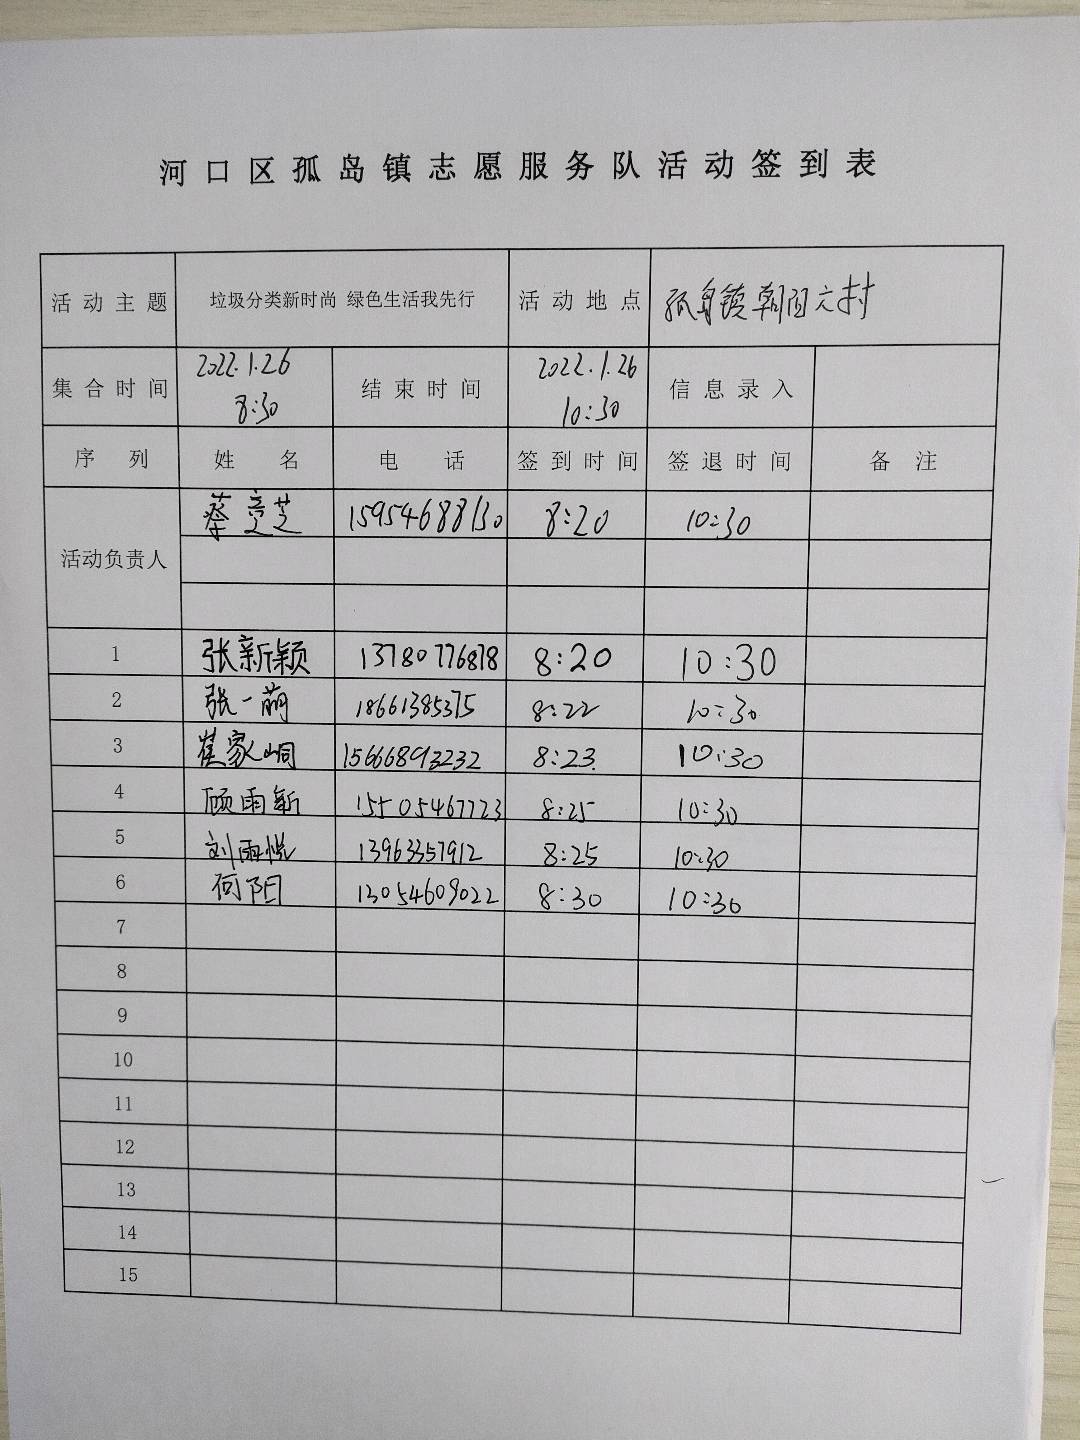 河口区孤岛镇志愿服务队活动签到表
活动主题 垃圾分类新时尚 绿色生活我先行 活动地点 孤岛镇朝阳六村
集合时间 2022.1.26 8:30 结束时间 2022.1.26 10:30 信息录入
序列 姓名 电话 签到时间 签退时间 备注
活动负责人 蔡竞芝 15954688130 8:20 10:30
1 张新颖 13780776878 8:20 10:30
2 张一萌 18661385375 8:22 10:30
3 崔家峒 15666893232 8:23 10:30
4 顾雨新 15505467723 8:25 10:30
5 刘雨悦 13963357912 8:25 10:30
6 何阳 13054609022 8:30 10:30
7
8
9
10
11
12
13
14
15